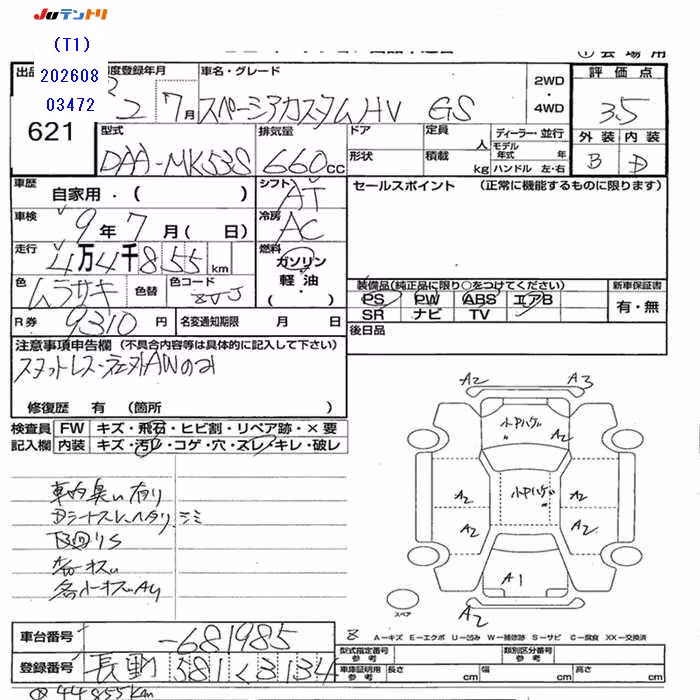 Juテントリ
(T1)
202608
03472
出品
621
初度登録年月
2 7月
車名・グレード
スペーシアカスタムHV GS
2WD・4WD
評価点
3.5
外装 内装
B D
型式
DAA-MK53S
排気量
660cc
ドア
形状
定員 人
積載 kg
ディーラー・並行
モデル年式 年
ハンドル 左・右
車歴
自家用・( )
シフト
AT
セールスポイント (正常に機能するものに限ります)
車検
9年7月( 日)
冷房
AC
走行
4万4千855km
燃料
ガソリン
軽油
( ・ )
色
ムラサキ
色替
色コード
装備品(純正品に限り○をつけてください)
PS PW ABS エアB
SR ナビ TV
新車保証書
有・無
R券
9310円
名変通知期限 月 日
後日品
注意事項申告欄 (不具合内容等は具体的に記入して下さい)
スタットレス・社外AWのみ
修復歴 有 (箇所 )
検査員記入欄
FW キズ・飛石・ヒビ割・リペア跡・×要
内装 キズ・汚レ・コゲ・穴・スレ・キレ・破レ
車内臭い有り
Dシートスレ、ヘタリ、シミ
各小キズ、AU
A2 A3
小P ハゲ
A2
小P ハゲ
A2 A2
A2 A2
A1
A2
スペアー
A-キズ E-エクボ U-凹み W-補修跡 S-サビ C-腐食 XX-交換済
車台番号
-681985
登録番号
長野 581 く 3134
型式指定番号 参考
類別区分番号 参考
車庫証明用 参考
長さ cm 幅 cm 高さ cm
44855km